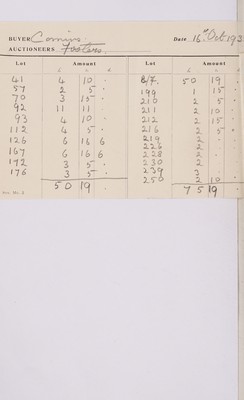 BUYER Comins Date 16th Oct 193
AUCTIONEERS Fosters
Lot Amount Lot Amount
£ s d £ s d
41 4 10 - B/F. 50 19 -
57 2 5 - 199 1 15 -
70 3 15 - 210 2 5 -
92 11 11 - 211 2 10 -
93 4 10 - 212 2 15 -
112 4 5 - 216 2 5 -
126 6 16 6 219 2 - -
167 6 16 6 226 2 - -
172 3 5 - 228 2 - -
176 3 5 - 230 2 - -
50 19 - 239 3 - -
250 2 10 -
75 19 -